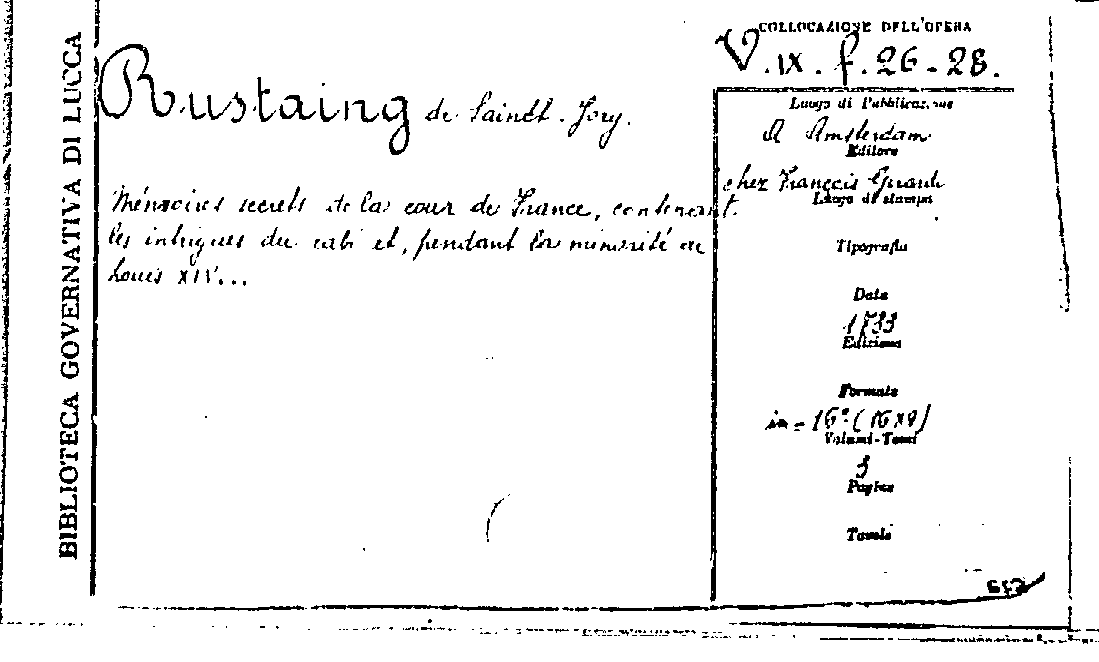 BIBLIOTECA GOVERNATIVA DI LUCCA
Rustaing de Sainct-Jory.
Mémoires secrets de la cour de France, contenant
les intrigues du cabi et, pendant la minorité de
Louis XIV...
COLLOCAZIONE DELL'OPERA
V. IX. f. 26-28.
Luogo di Pubblicazione
A Amsterdam
Editore
chez François Girardi
Luogo di stampa
Tipografia
Data
1733
Edizione
Formato
in-16° (16x9)
Volumi-Tomi
3
Pagine
Tavole